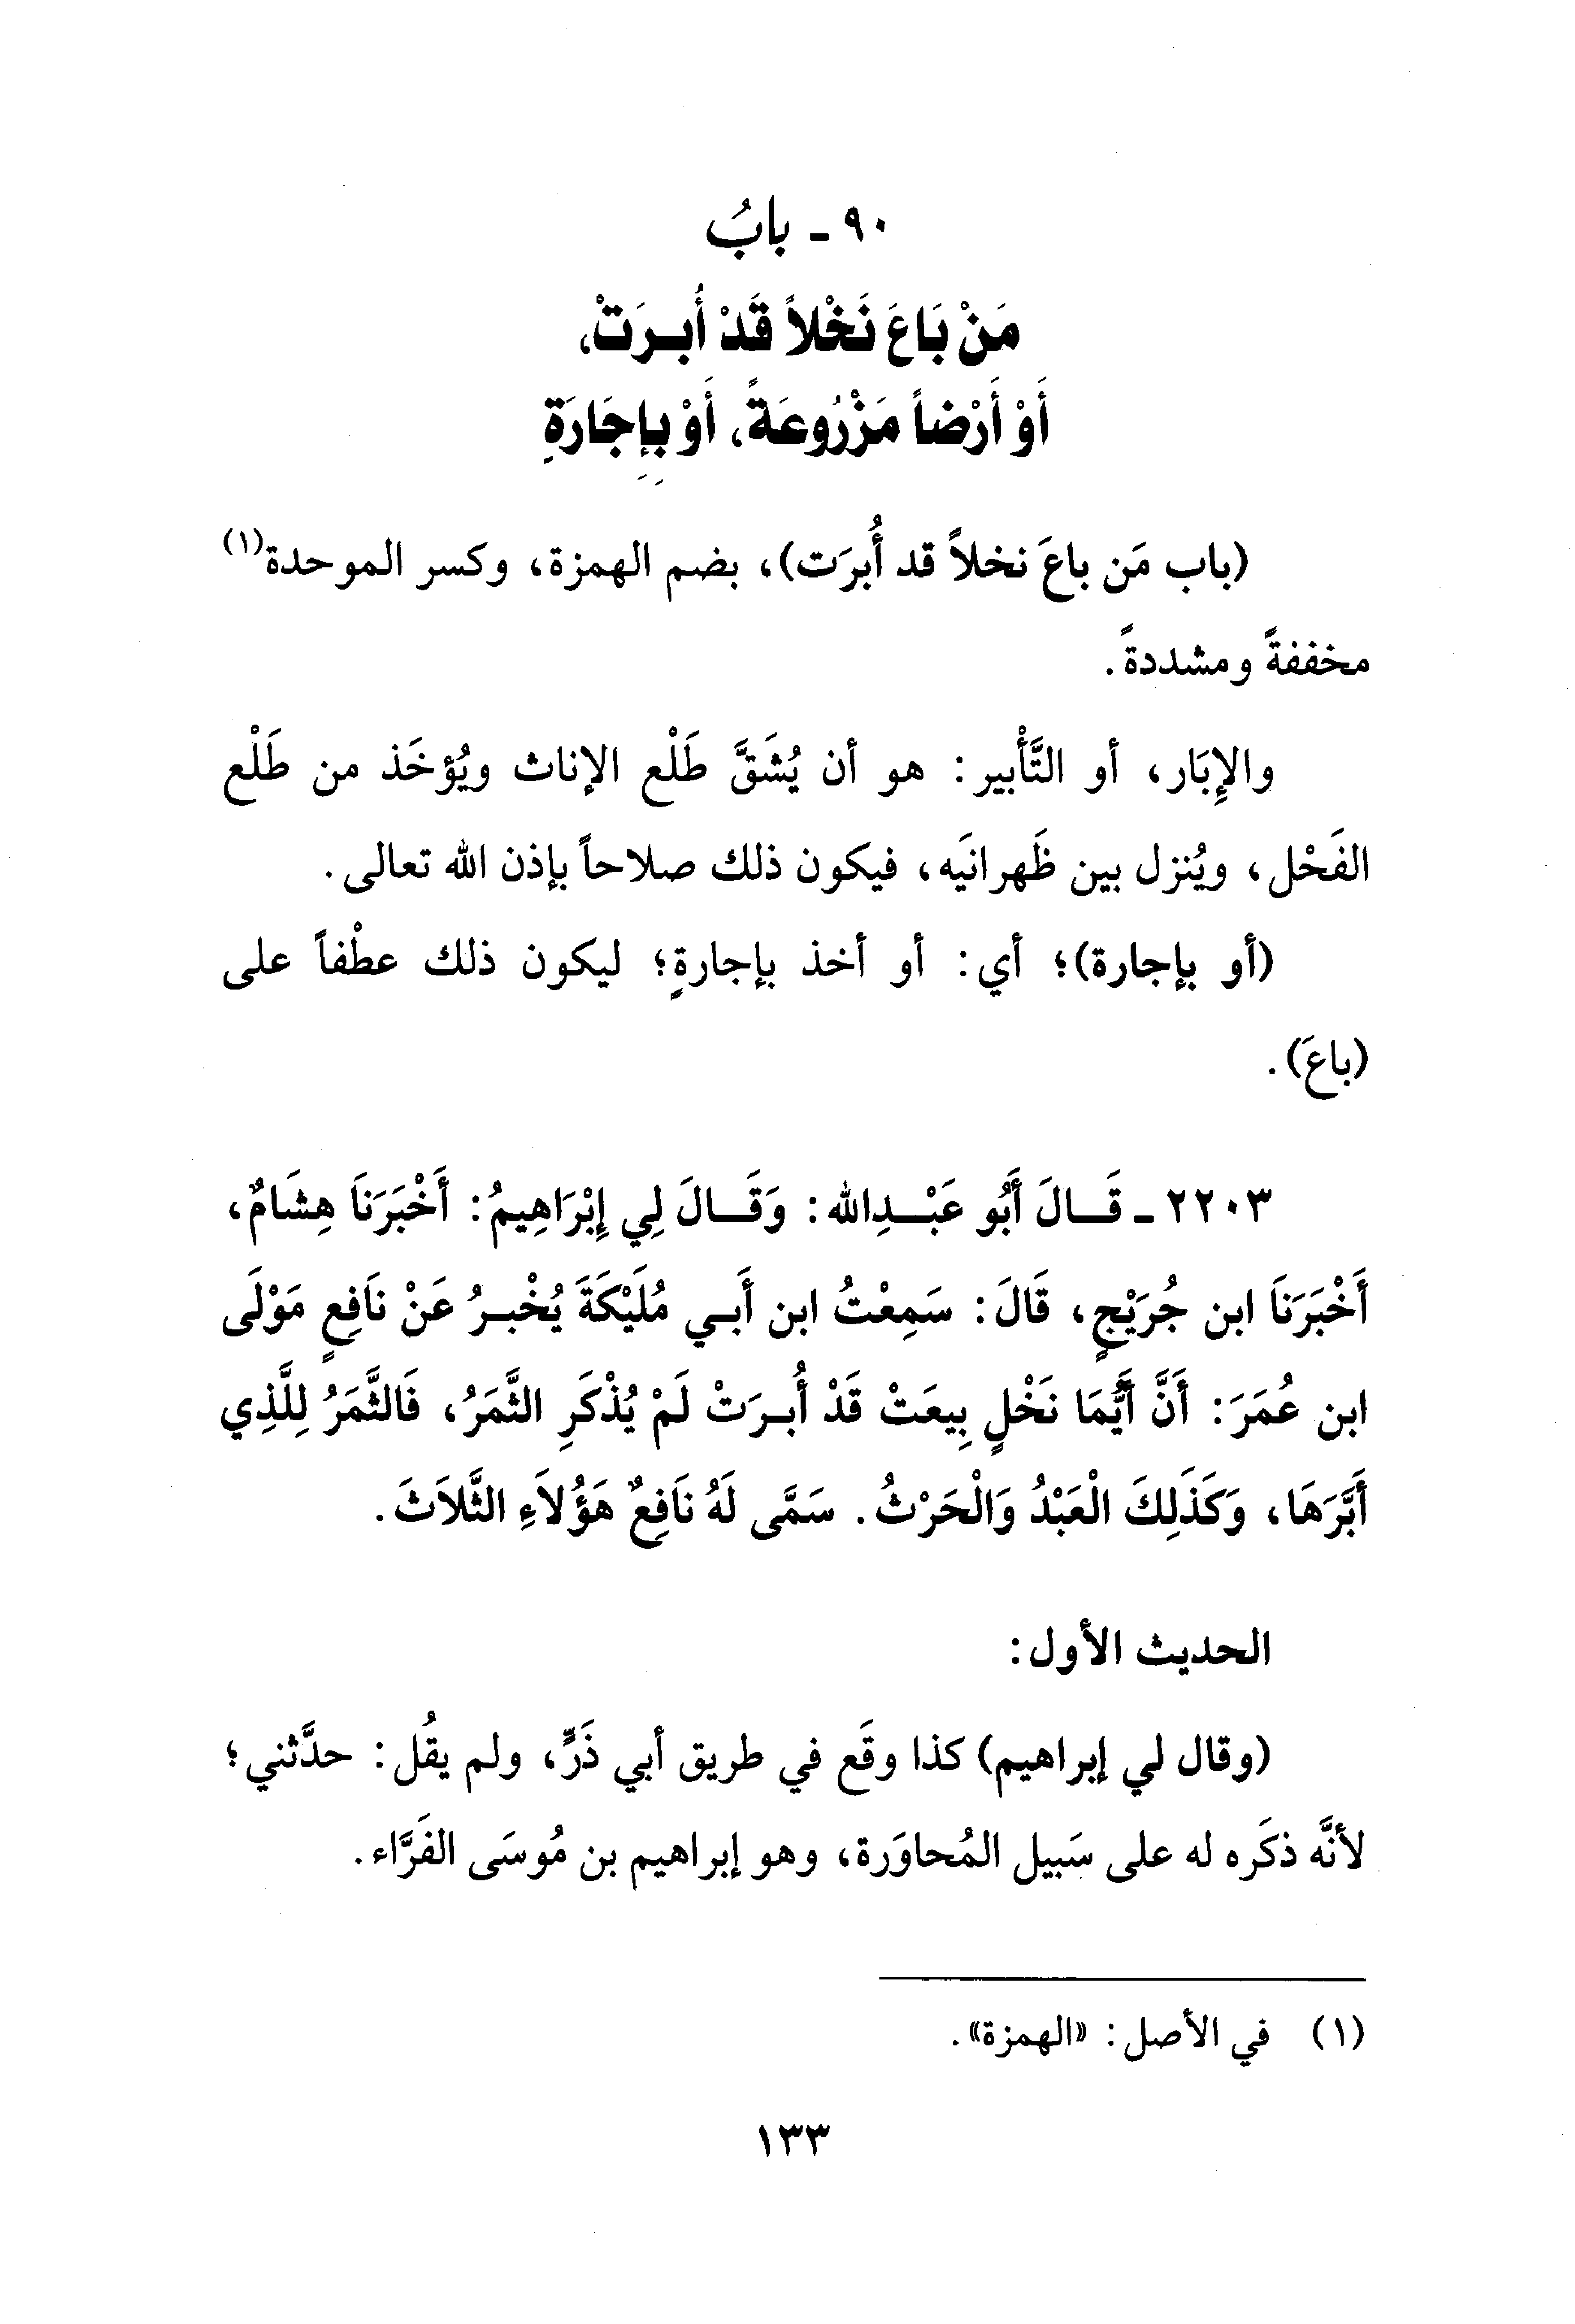 ٩٠ - بابُ
مَنْ بَاعَ نَخْلاً قَدْ أُبِرَتْ،
أَوْ أَرْضاً مَزْرُوعَةً، أَوْ بِإِجَارَةٍ
(باب مَن باعَ نخلاً قد أُبرَت)، بضم الهمزة، وكسر الموحدة(١)
مخففةً ومشددةً.
والإِبَار، أو التَّأْبير: هو أن يُشَقَّ طَلْع الإناث ويُؤخَذ من طَلْع
الفَحْل، ويُنزل بين ظَهرانَيه، فيكون ذلك صلاحاً بإذن الله تعالى.
(أو بإجارة)؛ أي: أو أخذ بإجارةٍ؛ ليكون ذلك عطْفاً على
(باعَ).
٢٢٠٣ - قَالَ أَبُو عَبْدِالله: وَقَالَ لِي إِبْرَاهِيمُ: أَخْبَرَنَا هِشَامٌ،
أَخْبَرَنَا ابن جُرَيْجٍ، قَالَ: سَمِعْتُ ابن أَبي مُلَيْكَةَ يُخْبرُ عَنْ نَافِعٍ مَوْلَى
ابن عُمَرَ: أَنَّ أَيُّمَا نَخْلٍ بِيعَتْ قَدْ أُبرَتْ لَمْ يُذْكَرِ الثَّمَرُ، فَالثَّمَرُ لِلَّذِي
أَبَّرَهَا، وَكَذَلِكَ الْعَبْدُ وَالْحَرْثُ. سَمَّى لَهُ نَافِعٌ هَؤُلاَءِ الثَّلاَثَ.
الحديث الأول:
(وقال لي إبراهيم) كذا وقَع في طريق أبي ذَرٍّ، ولم يقُل: حدَّثني؛
لأنَّه ذكَره له على سَبيل المُحاوَرة، وهو إبراهيم بن مُوسَى الفَرَّاء.
(١) في الأصل: «الهمزة».
١٣٣